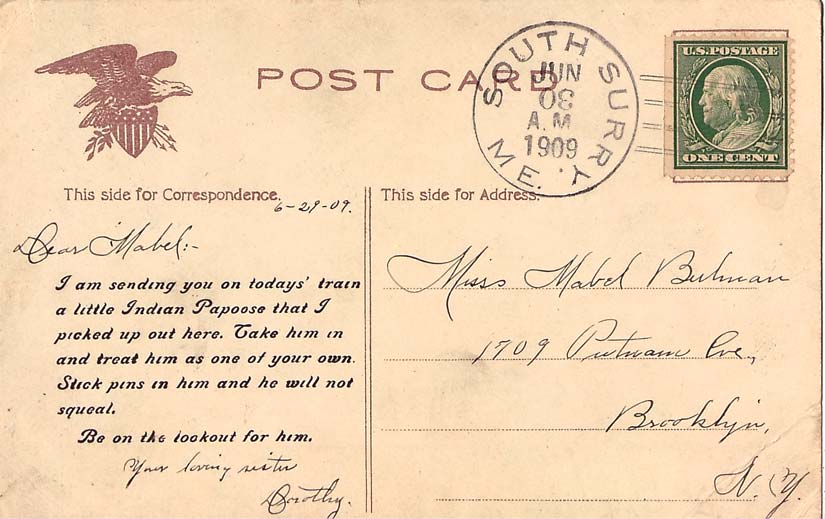 POST CARD
SOUTH SURRY
JUN
30
A.M
1909
ME.
U.S. POSTAGE
ONE CENT
This side for Correspondence.
6-29-09.
This side for Address.
Dear Mabel:-
I am sending you on todays' train
a little Indian Papoose that I
picked up out here. Take him in
and treat him as one of your own.
Stick pins in him and he will not
squeal.
Be on the lookout for him.
Your loving sister
Dorothy.
Miss Mabel Bulman
1709 Putnam Ave,
Brooklyn,
N.Y.